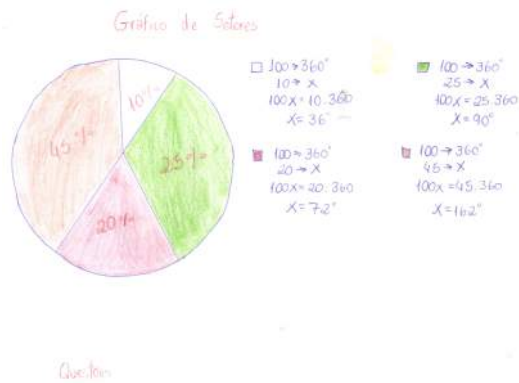 Gráfico de Setores
10%
25%
20%
45%
100→360°
10→x
100x=10.360
x=36°
100→360°
25→x
100x=25.360
x=90°
100→360°
20→x
100x=20.360
x=72°
100→360°
45→x
100x=45.360
x=162°